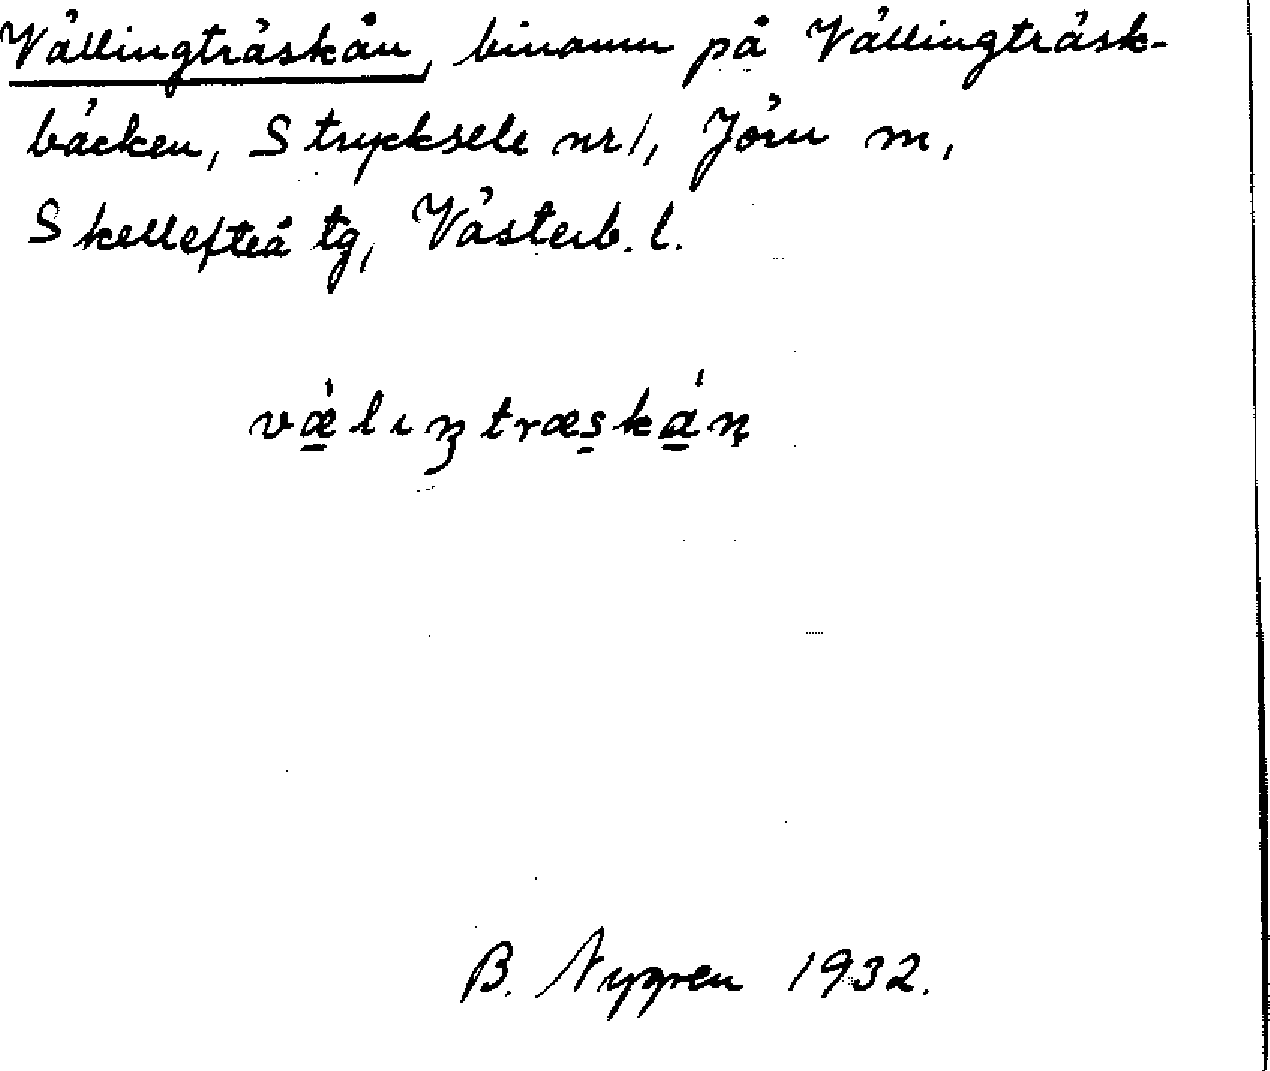 Vällingträskån, binamn på Vällingträsk-
bäcken, Strycksele nr 1, Jörn m,
Skellefteå tg, Västerb. l.
væ̀lıŋtræskán
B. Nygren 1932.